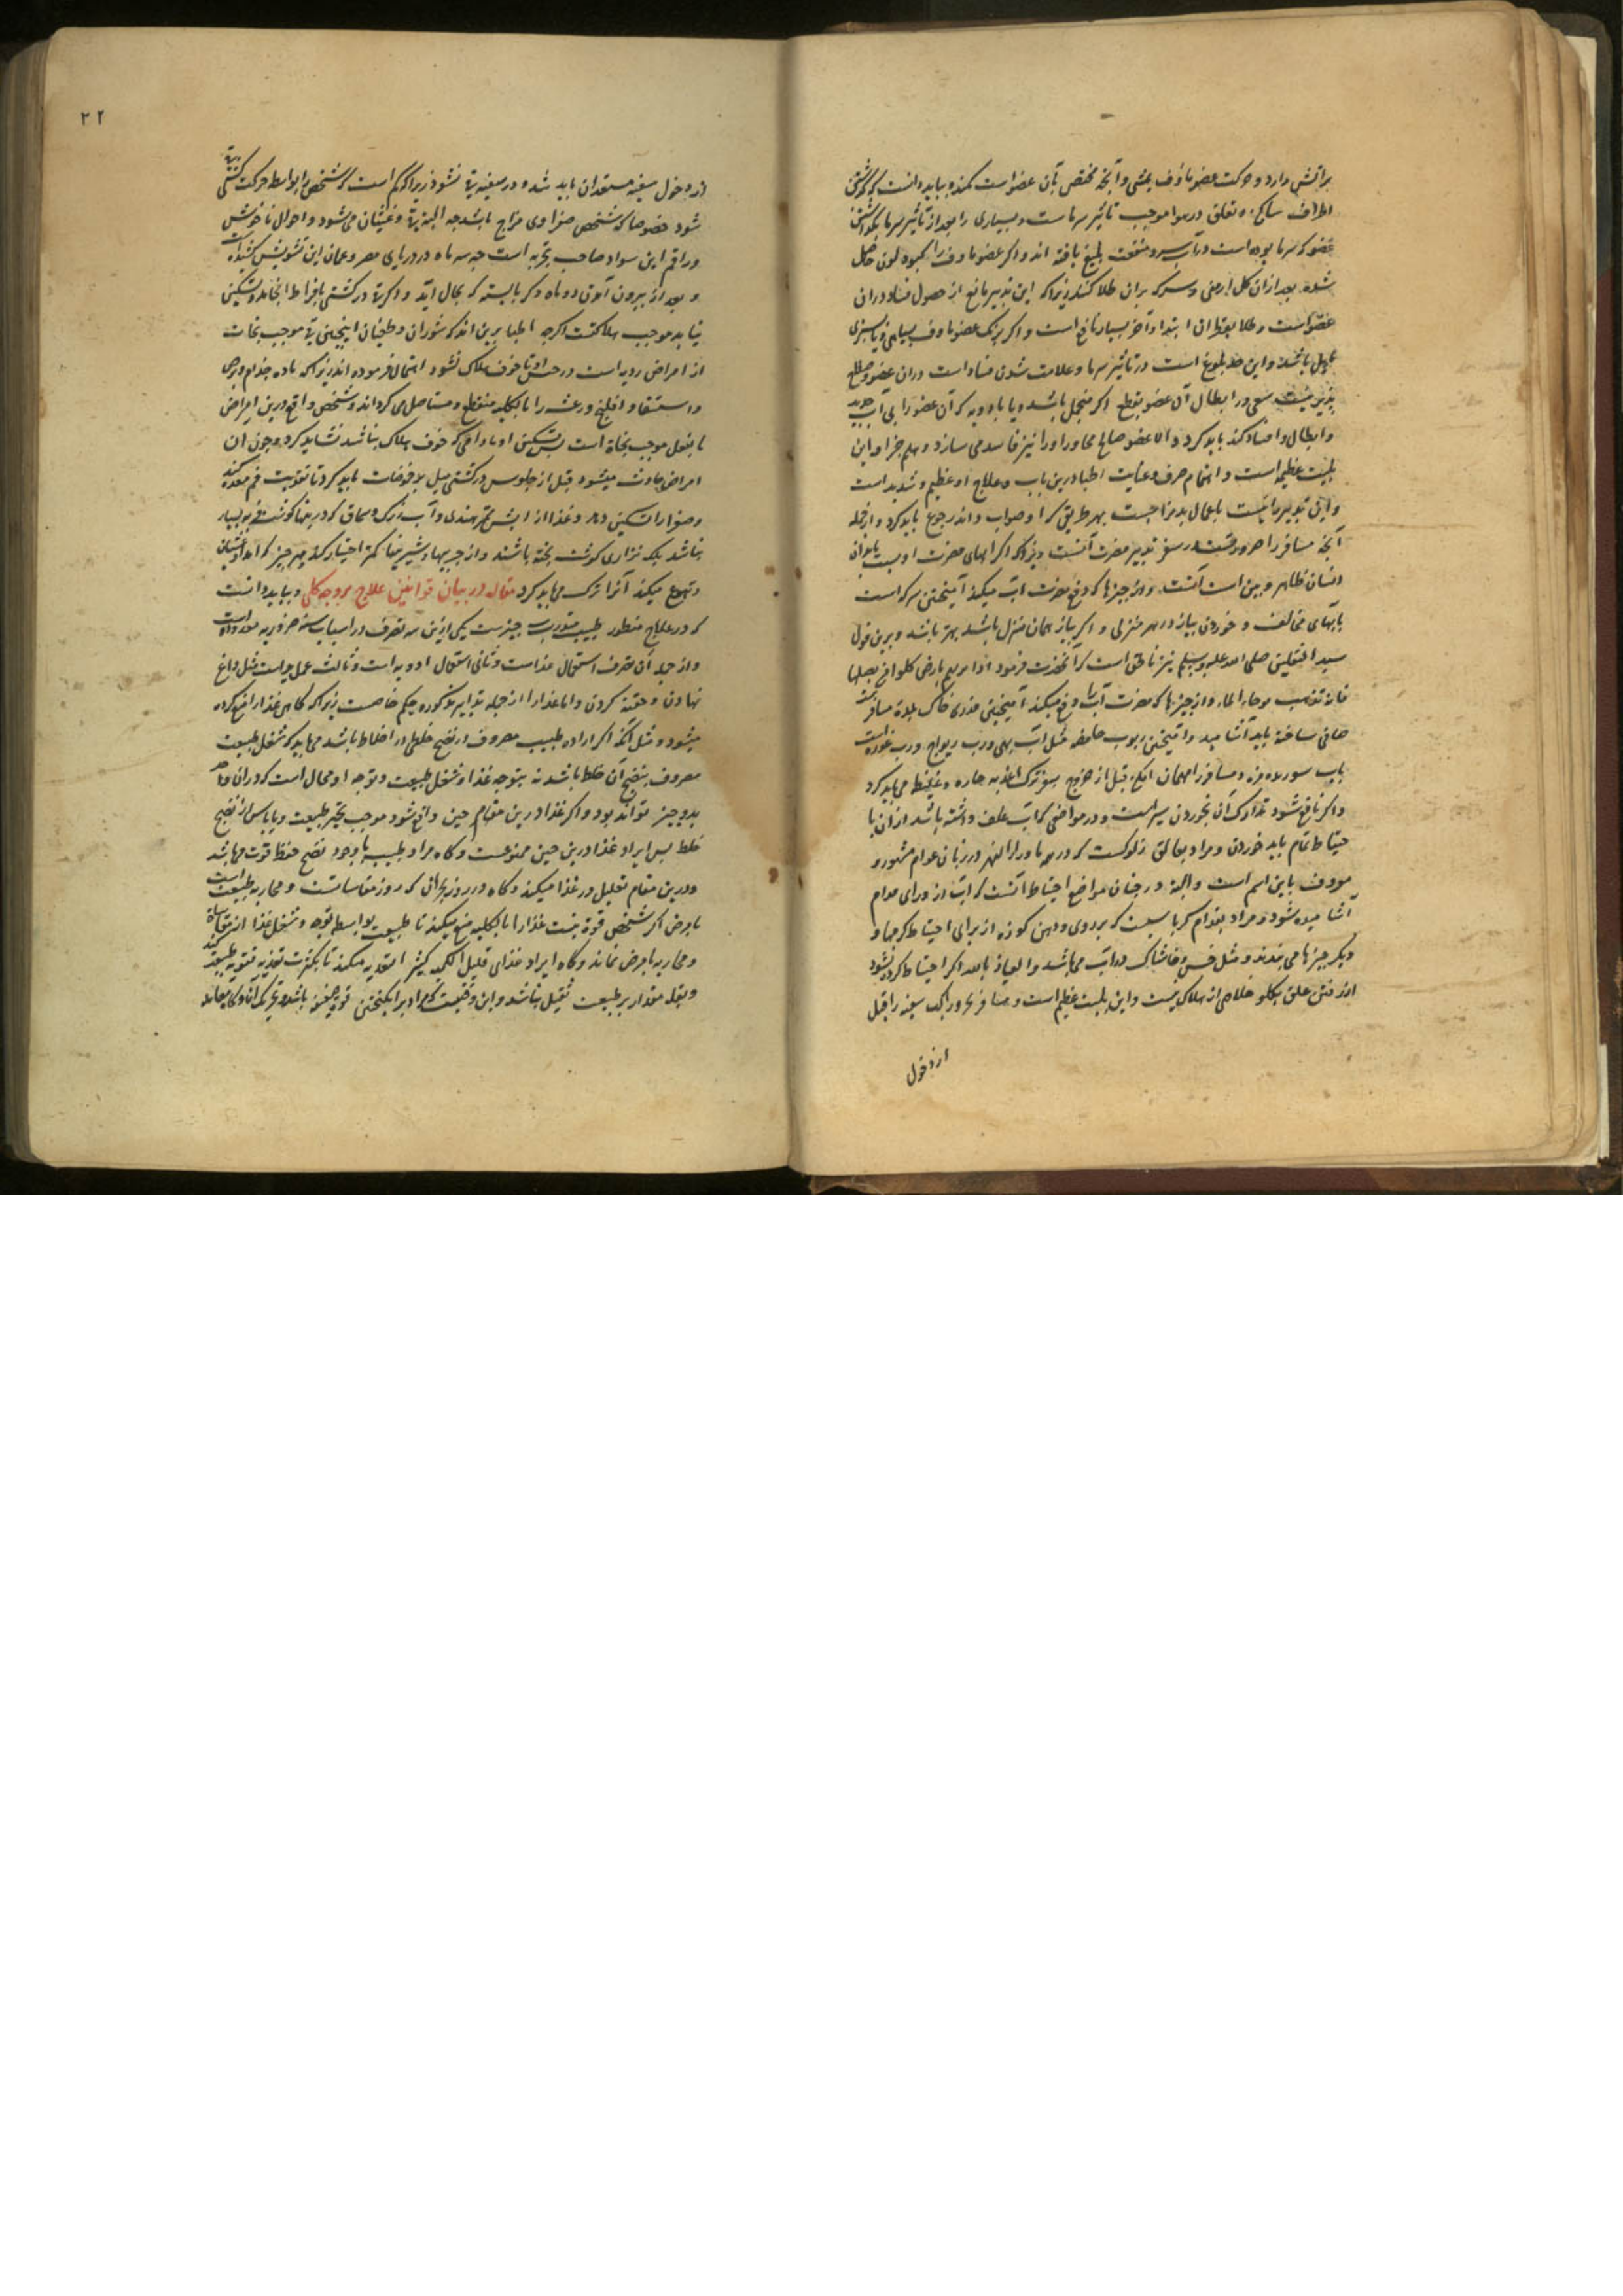 بر آتش دارد و حرکت عضو ماؤف بمشی و آنچه مختص بآن عضو است کند و بباید دانست که
اطراف تعلق در هوا موجب تاثیر سرما ست و بسیاری را بعد از تاثیر سرما
عضو که سرما بوده است در آب سرد منفعت بلیغ یافته اند و اگر عضو ماوف را کمبود لون حاصل
شده بعد از آن گل ارمنی و سرکه بر آن طلا کنند زیرا که این تدبیر مانع از حصول فساد در آن
عضو است و طلا بقطران ابتدا و آخر بسیار نافع است و اگر رنگ عضو ماوف بسیاهی و یا سبزی
مایل باشد و این حد بلوغ است در تاثیر سرما و علامت شدن فساد است در آن عضو و صلاح
پذیر نیست سعی در ابطال آن عضو بقطع اگر باشد و یا بادویه که آن عضو را بی آب
و ابطال و افساد کند باید کرد و الا عضو صالح مجاور او را نیز فاسد می سازد و این
بلیت عظیم است و اتمام صرف و عنایت اطبا درین باب و علاج او عظیم و شدید است
و این تدبیر مانیست باعمال بد مزاجست بهر طریق که او صواب داند رجوع باید کرد و از جمله
آنچه مسافر را ضروریست در سفر تدبیر مضرت آبست زیرا که اگر آبهای مضرت او بسبب بابدان
انسان ظاهر و مبین است آنست و از چیزها که دفع مضرت آب میکند آمیختن سرکه است
بآبهای مخالف و خوردن پیاز در هر منزلی و اگر پیاز همان منزل باشد بهتر باشد و برین قول
سید الثقلین صلی الله علیه و سلم نیز ناطق است که آنحضرت فرمود اذا مریتم بارض کلوا من بصلها
فانه تذهب موجاء الماء و از چیزها که مضرت آب را دفع میکند آمیختن قدری خاک بلده مسافر
صافی ساخته باید آشامید و آمیختن ربوب حامضه مثل رب بهی و رب ریواج و رب غوره است
باب سوره و مسافر را مهما امکن قبل از خروج بسفر ترک اغذیه حاره و غلیظ می باید کرد
و اگر نافع شود تدارک آن بخوردن سیر است و در مواضعی که آب علف داشته باشد از آن با
حتیاط تمام باید خوردن و مراد بعالق زلوکست که در همه ماوراء النهر در زبان عوام مشهور و
معروف باین اسم است و البته در چنان مواضع احتیاط آنست که آب از ورای مدام
آشامیده شود و مراد بفدام کرباسیست که بر روی و دهن کوزه از برای احتیاط کرمها و
دیگر چیزها می بندند و مثل خس و خاشاک در آب می باشد و العیاذ بالله اگر احتیاط کرده نشود
از رفتن علق بگلو خلاصی از هلاک نیست و این بلیت عظیم است و مسافر بحر و راکب سفینه را قبل
از دخول
۲۲
از دخول سفینه مستعد آن باید شد و در سفینه قی نشود زیرا که کم است که شخصی را بواسطه حرکت کشتی قی نه
شود خصوصا که شخص صفراوی مزاج باشد چه البته قی و غثیان می شود و احوال ناخوش
و راقم این سواد صاحب تجربه است چه سه ماه در دریای مصر و عمان این تشویش کشیده است
و بعد از بیرون آمدن دو ماه دیگر بایسته که بحال آید و اگر قی در کشتی بافراط انجامد و تسکین
نیابد موجب هلاکتست اگرچه اطبا برین اند که شوران و طغیان اینچنین قی موجب نجات
از امراض ردیه است در حبس او تا خوف هلاک نشود اهتمال فرموده اند زیرا که ماده جذام و برص
و استسقا و افلیج و رعشه را بالکلیه منقطع و مستاصل می گرداند و شخص واقع درین امراض
بالفعل موجب نجاة است پس تسکین او مادامی که خوف هلاک نباشد نشاید کرد و چون آن
امراض حادث میشود قبل از جلوس در کشتی میل بحموضات باید کرد تا تقویت فم معده کند
و صفرا را تسکین دهد و غذا از آش تمر هندی و آب زرک و سماق که در اینها گوشت فربه بسیار
نباشد بلکه نزاری گوشت پخته باشند و از چربیها و شیرینیها کمتر اختیار کند و هر چیز که امداد غثیان
و تهوع میکند آنرا ترک می باید کرد مقاله در بیان قوانین علاج بر وجه کلی و بباید دانست
که در علاج منظور طبیب چیزست یکی ازین سه تصرف در اسباب سته ضروریه
و از جمله آن تصرف استعمال غذاست و ثانی استعمال ادویه است و ثالث عمل ید است مثل داغ
نهادن و حقنه کردن و اما غذا را از جمله تدابیر مذکوره حکم خاصست زیرا که گاهی غذا را منع کرده
میشود و مثل آنکه اگر اراده طبیب مصروف در نضج خلطی در اخلاط باشد می باید که شغل طبیعت
مصروف بنضج آن خلط باشد نه بتوجه غذا و شغل طبیعت و توجه او محال است که در آن واحد
بدو چیز تواند بود و اگر غذا درین مقام حین واقع شود موجب تحیر طبیعت و یا باس از نضج
خلط پس ایراد غذا درین حین ممنوعست و گاه مراد طبیب با وجود نضج حفظ قوت می باشد
و درین مقام تقلیل در غذا میکند و گاه در روز بحران که روز مقاساتست و محاربه طبیعت است
بامرض اگر شخص قوة نیست غذا را بالکلیه منع میکند تا طبیعت بواسطه توجه و شغل غذا از مقاساة
و محاربه بامرض نماند و گاه ایراد غذای قلیل الکمیه کثیر التغذیه میکند تا بکثرت تغذیه تقویه طبیعت کند
و بقله مقدار بر طبیعت ثقیل نباشد و این وقتیست که مراد برانگیختن قوة ضعیفه باشد و تحریک آن و گاه بعکس